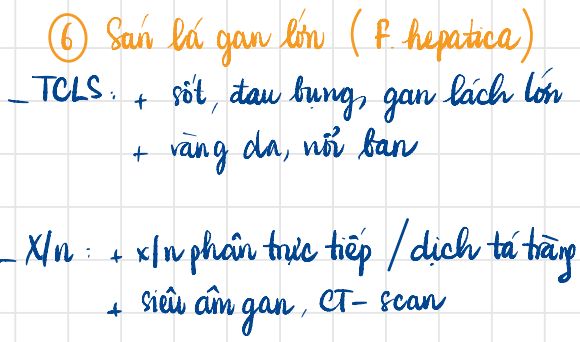 ⑥ Sán lá gan lớn (F. hepatica)
- TCLS: + sốt, đau bụng, gan lách lớn
+ vàng da, nổi ban
- X/n: + x/n phân trực tiếp / dịch tá tràng
+ siêu âm gan, CT-scan